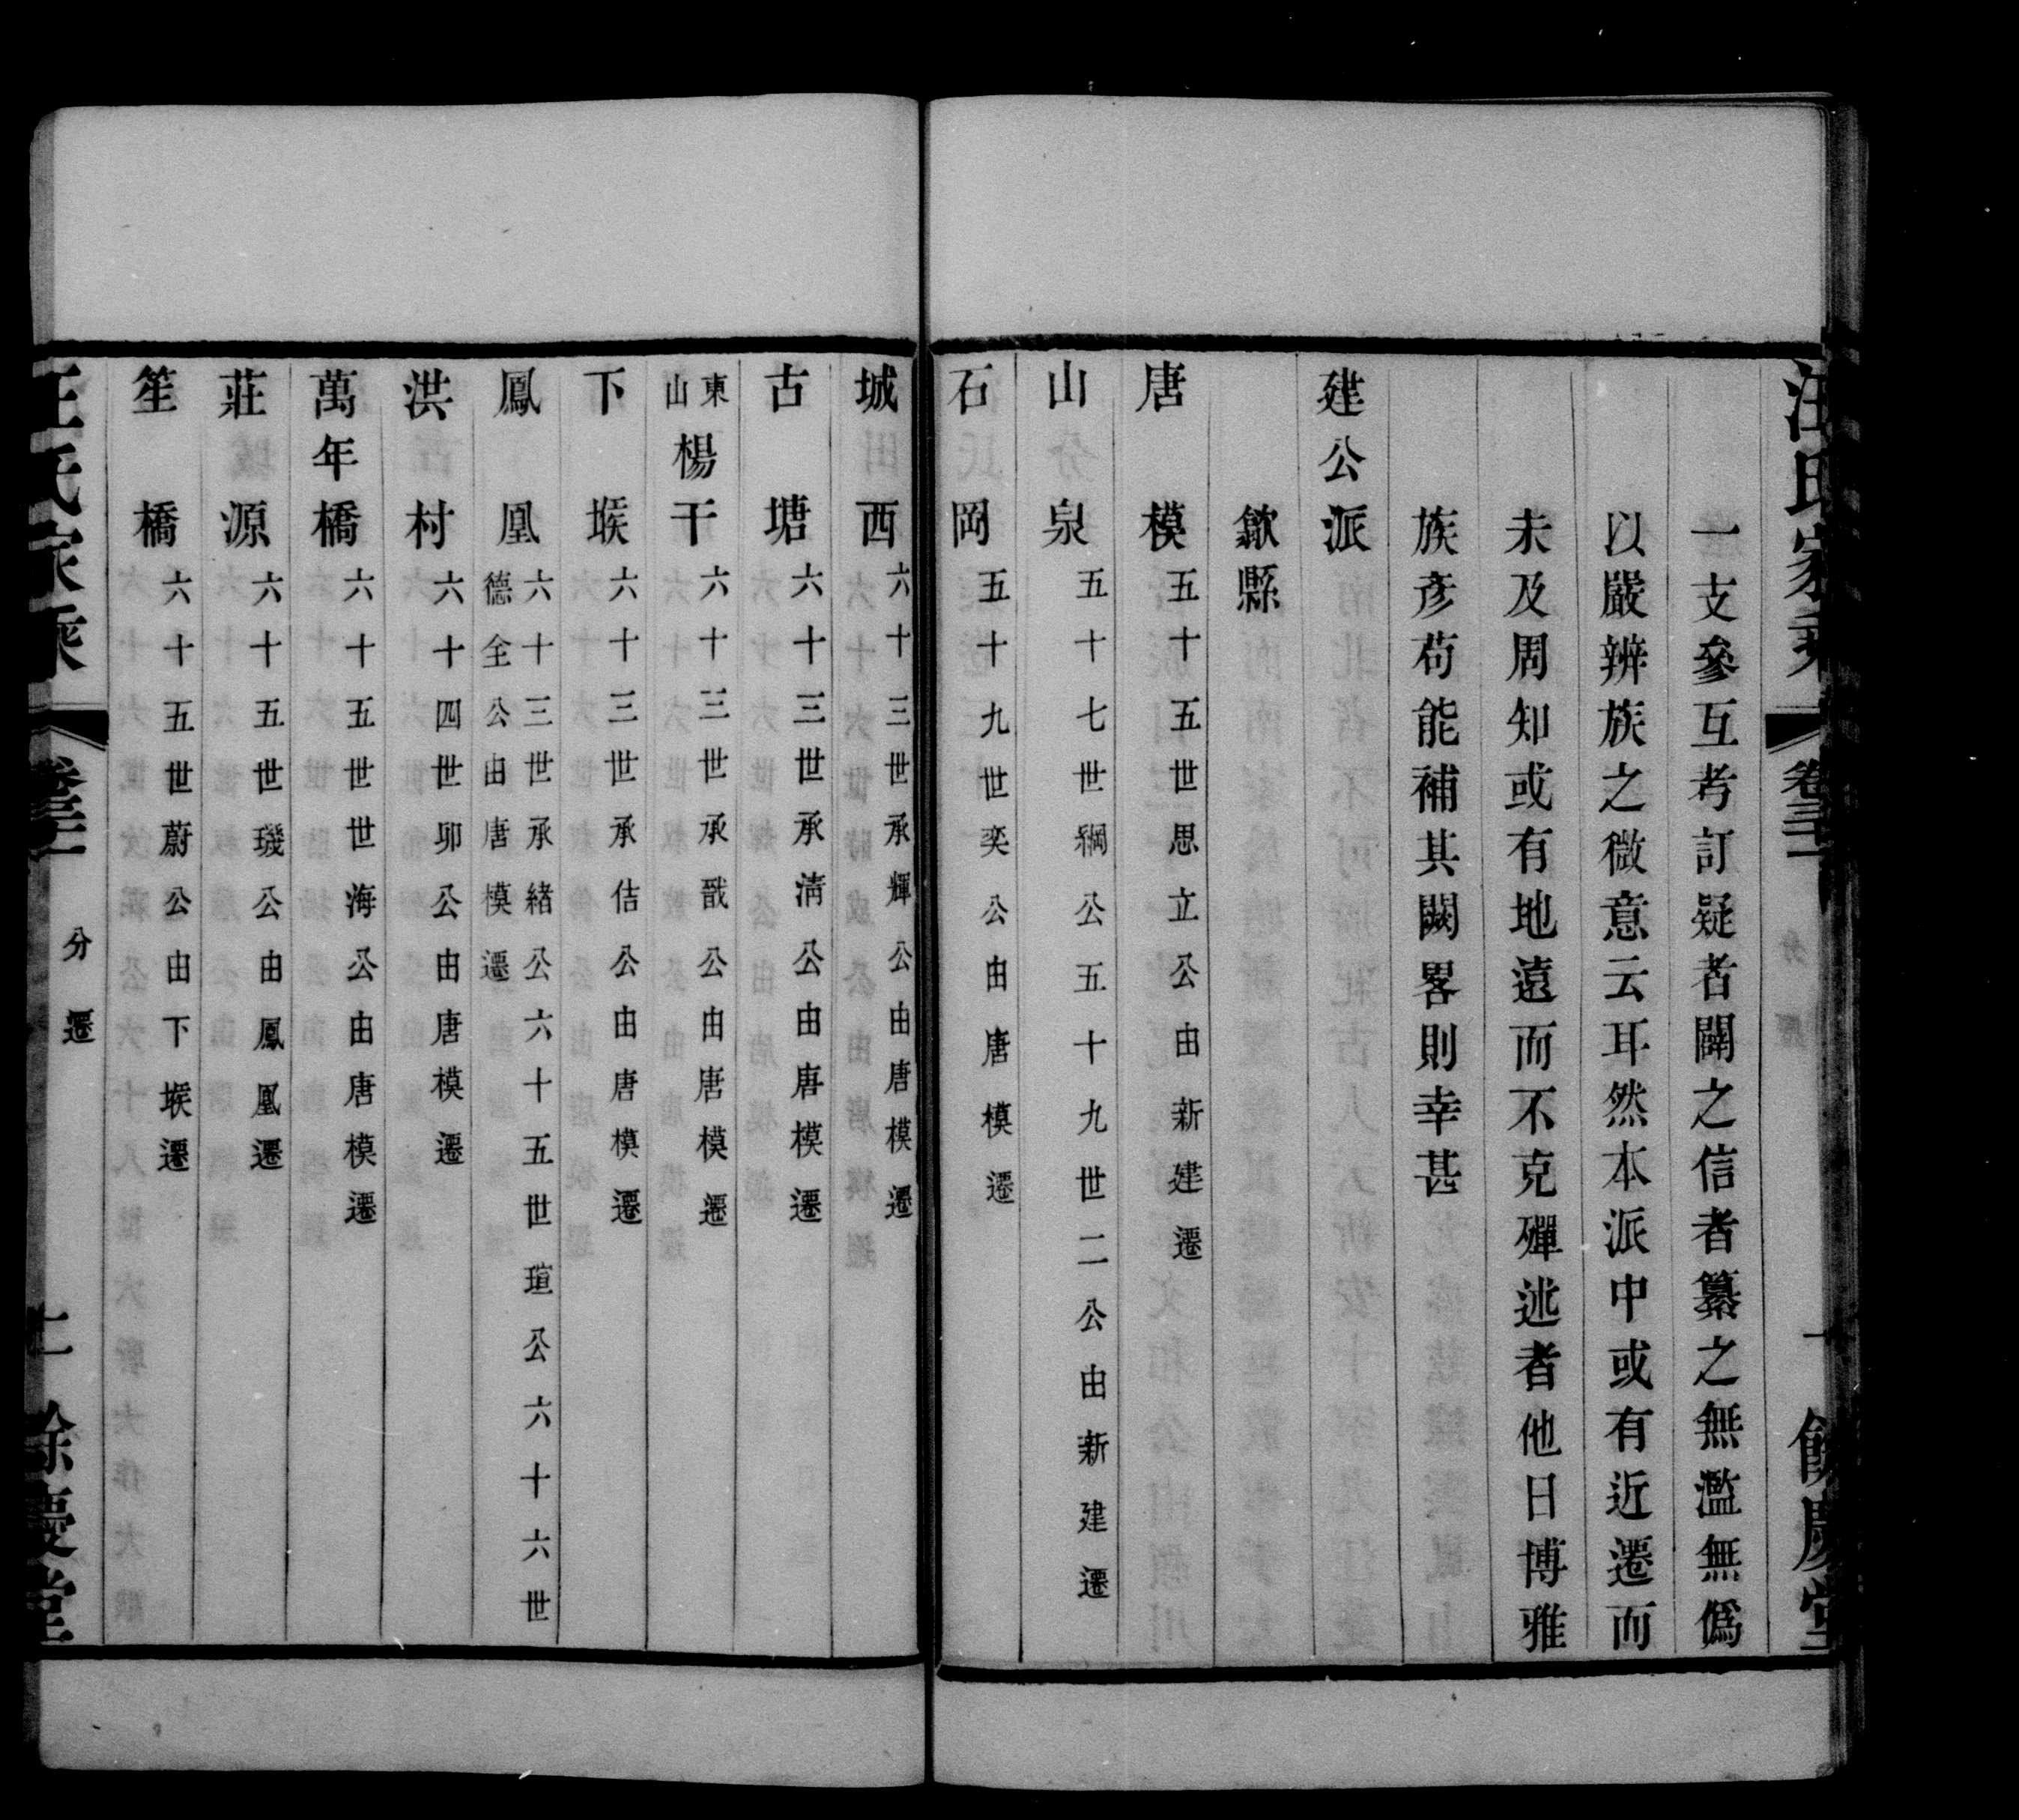 汪氏家乘 卷三 十 餘慶堂
一支參互考訂疑者闕之信者纂之無濫無僞
以嚴辨族之微意云耳然本派中或有近遷而
未及周知或有地遠而不克殫述者他日博雅
族彥苟能補其闕畧則幸甚
建公派
歙縣
唐模 五十五世思立公由新建遷
山泉 五十七世綱公五十九世二公由新建遷
石岡 五十九世奕公由唐模遷
城西 六十三世承輝公由唐模遷
古塘 六十三世承淸公由唐模遷
東山楊干 六十三世承戩公由唐模遷
下堠 六十三世承佶公由唐模遷
鳳凰 六十三世承緒公六十五世瑄公六十六世
德全公由唐模遷
洪村 六十四世卯公由唐模遷
萬年橋 六十五世海公由唐模遷
莊源 六十五世璣公由鳳凰遷
笙橋 六十五世蔚公由下堠遷
汪氏家乘 卷三 分遷 十一 餘慶堂